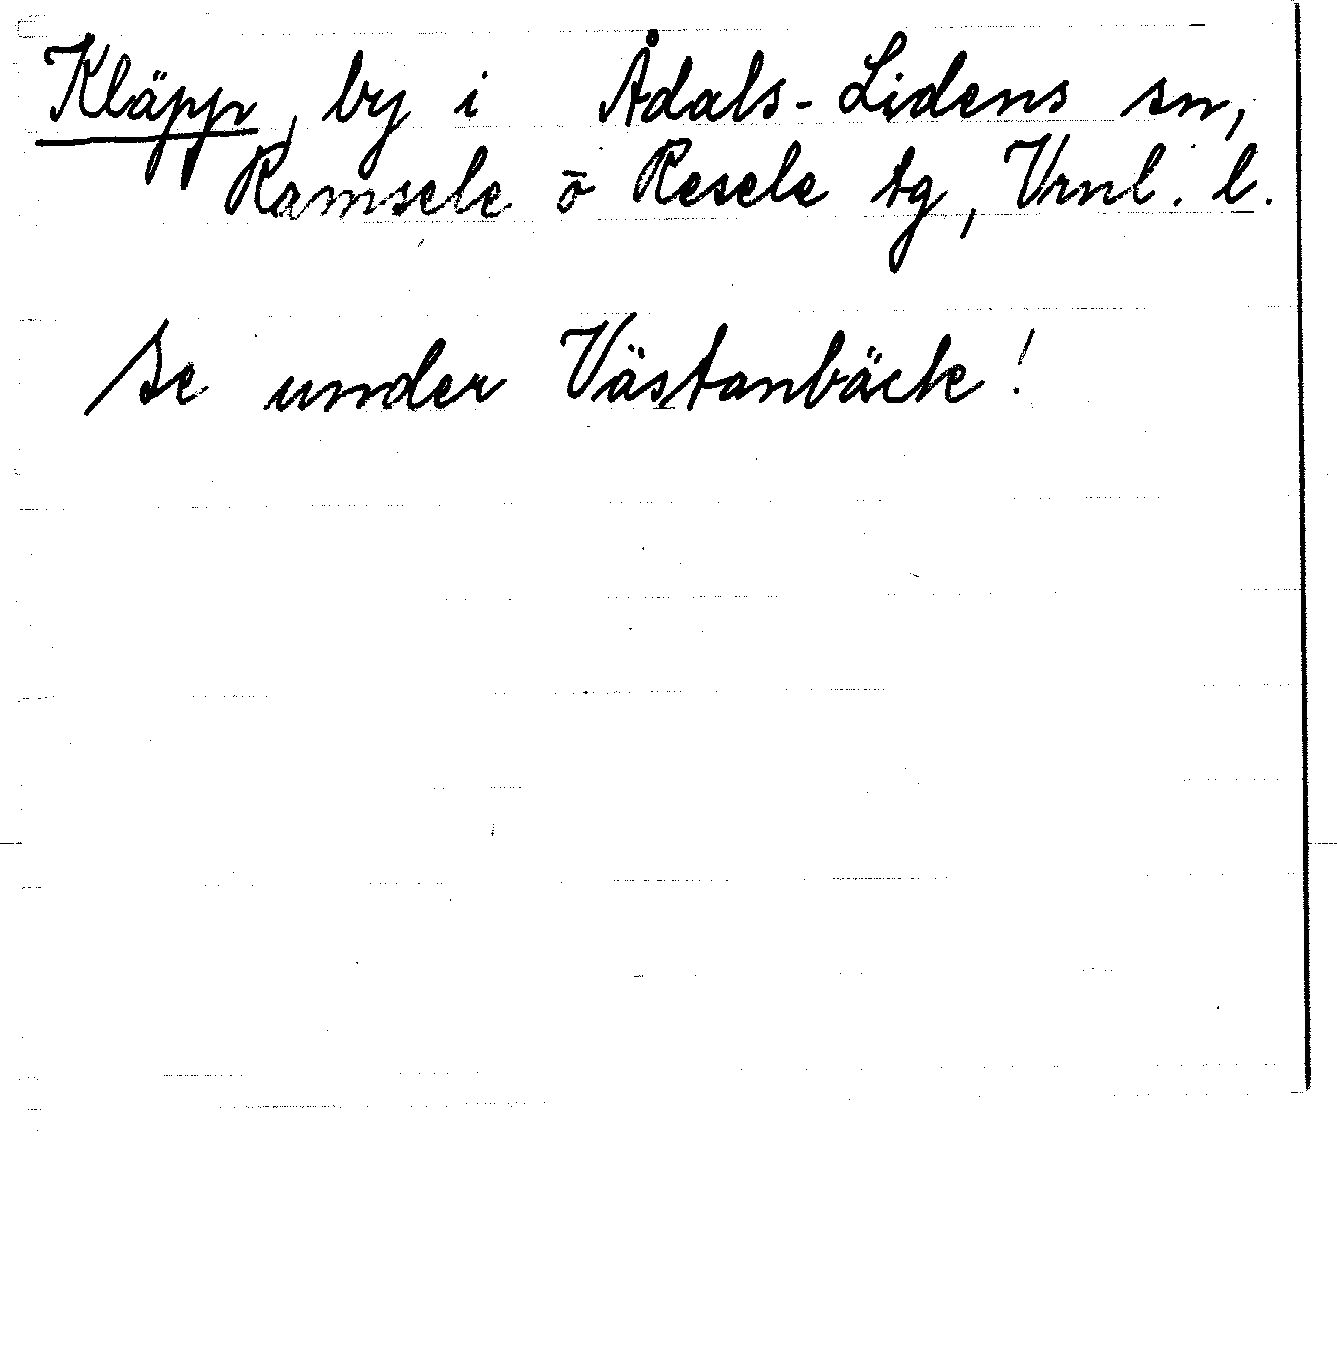 Kläpp, by i Ådals-Lidens sn,
Ramsele o Resele tg, Vrnl. l.
se under Västanbäck!